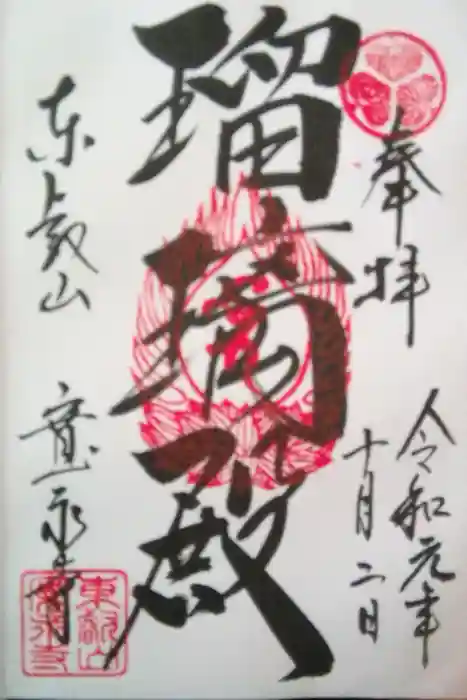 奉拝
令和元年
十月二日
瑠璃殿
東叡山 寛永寺
東叡山
寛永寺